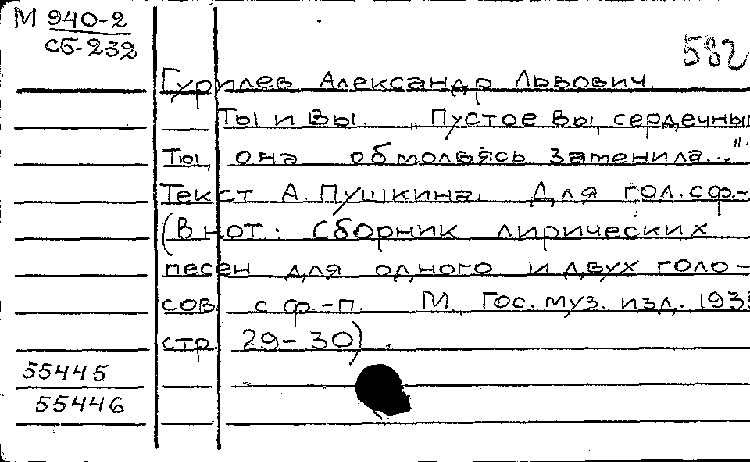 М 940-2
сб-232
582
Гурилев Александр Львович
Ты и Вы. "Пустое Вы сердечным
Ты, она обмолвясь заменила..."
Текст А. Пушкина. Для гол. сф.-
(В нот: Сборник лирических
песен для одного и двух голо-
сов с ф.-п. М., Гос. муз. изд. 193
стр 29-30).
55445
55446